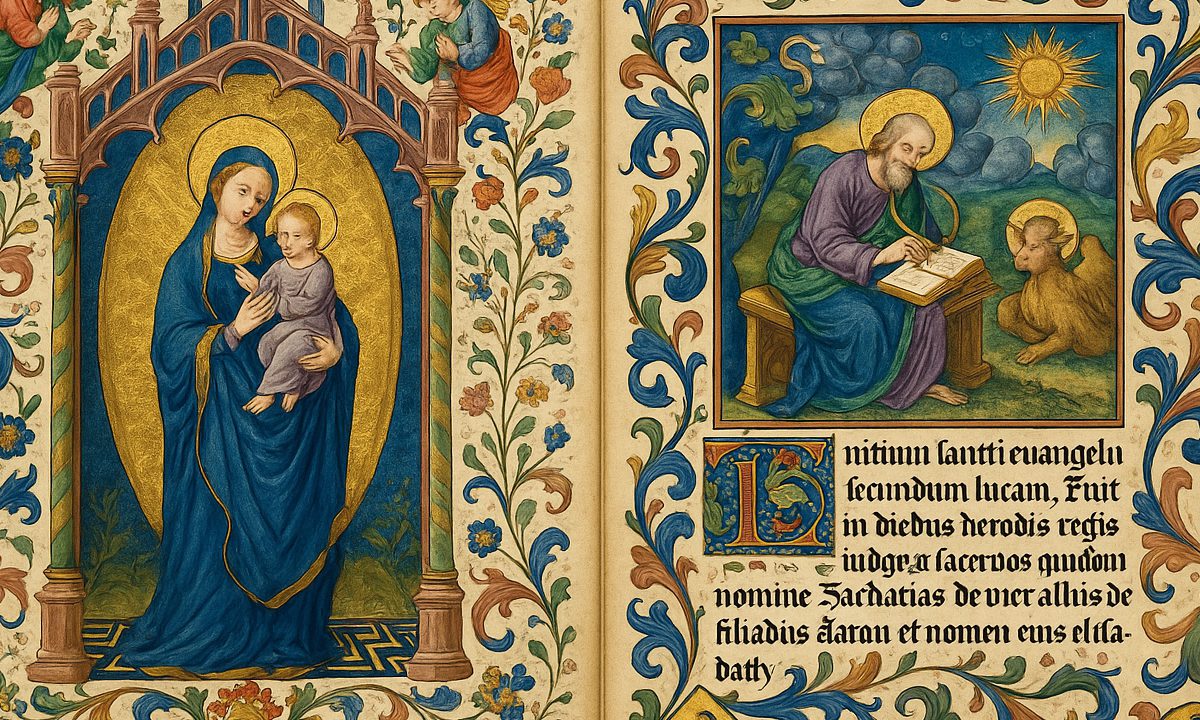 Initiuu santti euangelu
secundum lucam, Fuit
in diebus herodis regis
iudgea sacervos quidom
nomine Zachatias de vier alhis de
filiadiis Aarau et nomen eius elisa-
bath